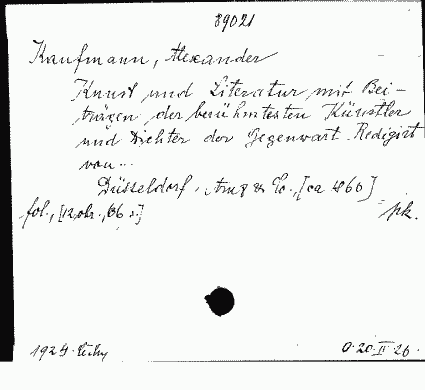 89021
Kaufmann, Alexander
Kunst und Literatur mit Bei-
trägen der berühmtesten Künstler
und Dichter der Gegenwart. Redigirt
von...
Düsseldorf, Arnz & Co., [ca 1860]
fol., [12 chr., 86 s.] pk.
1924
0.20.IV.26.